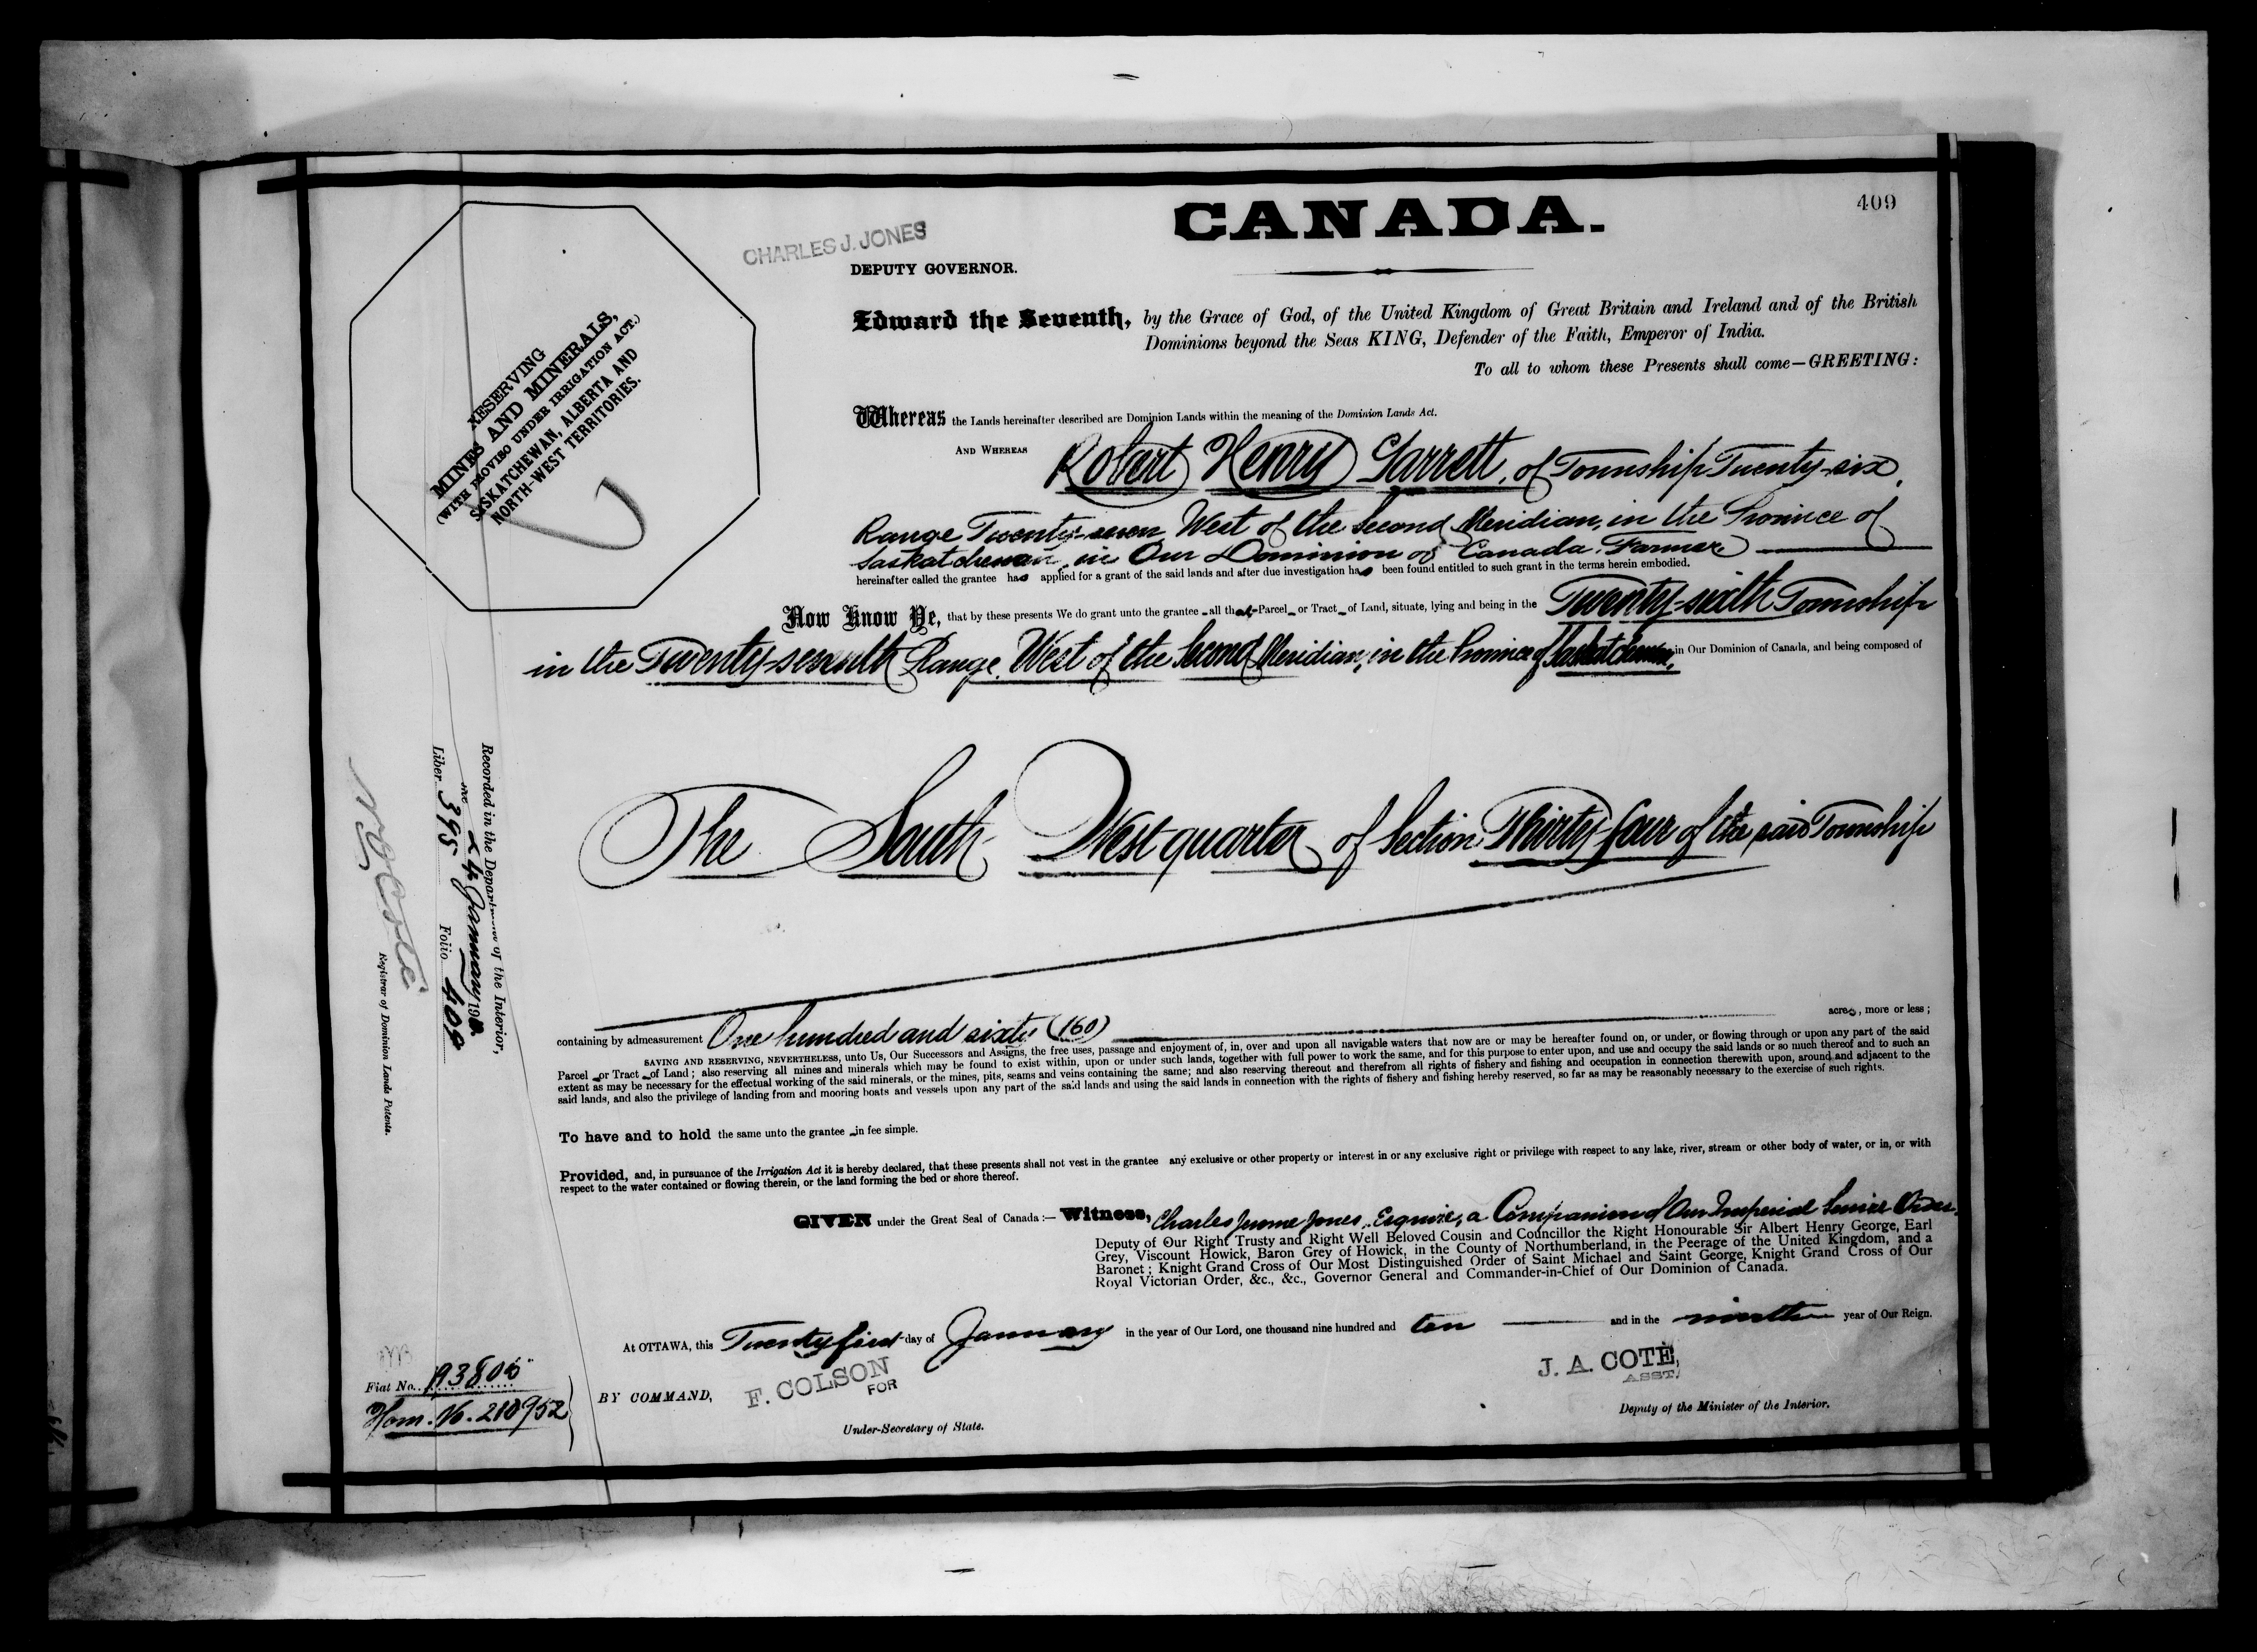 409
CANADA.
CHARLES J. JONES
DEPUTY GOVERNOR.
RESERVING
MINES AND MINERALS,
(WITH PROVISO UNDER IRRIGATION ACT.)
SASKATCHEWAN, ALBERTA AND
NORTH-WEST TERRITORIES.
Edward the Seventh, by the Grace of God, of the United Kingdom of Great Britain and Ireland and of the British
Dominions beyond the Seas KING, Defender of the Faith, Emperor of India.
To all to whom these Presents shall come—GREETING:
Whereas the Lands hereinafter described are Dominion Lands within the meaning of the Dominion Lands Act.
AND WHEREAS Robert Henry Garrett, of Township Twenty-six,
Range Twenty-seven West of the Second Meridian, in the Province of
Saskatchewan, in Our Dominion of Canada, Farmer
hereinafter called the grantee has applied for a grant of the said lands and after due investigation has been found entitled to such grant in the terms herein embodied.
Now Know Ye, that by these presents We do grant unto the grantee all that Parcel or Tract of Land, situate, lying and being in the Twenty-sixth Township
in the Twenty-seventh Range, West of the Second Meridian, in the Province of Saskatchewan, in Our Dominion of Canada, and being composed of
The South West quarter of Section Thirty-four of the said Township
containing by admeasurement One hundred and sixty (160) acres, more or less;
SAVING AND RESERVING, NEVERTHELESS, unto Us, Our Successors and Assigns, the free uses, passage and enjoyment of, in, over and upon all navigable waters that now are or may be hereafter found on, or under, or flowing through or upon any part of the said
Parcel or Tract of Land; also reserving all mines and minerals which may be found to exist within, upon or under such lands, together with full power to work the same, and for this purpose to enter upon, and use and occupy the said lands or so much thereof and to such an
extent as may be necessary for the effectual working of the said minerals, or the mines, pits, seams and veins containing the same; and also reserving thereout and therefrom all rights of fishery and fishing and occupation in connection therewith upon, around and adjacent to the
said lands, and also the privilege of landing from and mooring boats and vessels upon any part of the said lands and using the said lands in connection with the rights of fishery and fishing hereby reserved, so far as may be reasonably necessary to the exercise of such rights.
To have and to hold the same unto the grantee in fee simple.
Provided, and, in pursuance of the Irrigation Act it is hereby declared, that these presents shall not vest in the grantee any exclusive or other property or interest in or any exclusive right or privilege with respect to any lake, river, stream or other body of water, or in, or with
respect to the water contained or flowing therein, or the land forming the bed or shore thereof.
GIVEN under the Great Seal of Canada:— Witness, Charles Jerome Jones, Esquire, a Companion of Our Imperial Service Order,
Deputy of Our Right Trusty and Right Well Beloved Cousin and Councillor the Right Honourable Sir Albert Henry George, Earl
Grey, Viscount Howick, Baron Grey of Howick, in the County of Northumberland, in the Peerage of the United Kingdom, and a
Baronet; Knight Grand Cross of Our Most Distinguished Order of Saint Michael and Saint George, Knight Grand Cross of Our
Royal Victorian Order, &c., &c., Governor General and Commander-in-Chief of Our Dominion of Canada.
At OTTAWA, this Twenty first day of January in the year of Our Lord, one thousand nine hundred and ten and in the ninth year of Our Reign.
BY COMMAND,
F. COLSON
FOR
Under-Secretary of State.
J. A. COTÉ,
ASST.
Deputy of the Minister of the Interior.
Recorded in the Department of the Interior,
24 January 1910
Liber 395 Folio 409
N. O. Coté
Registrar of Dominion Lands Patents.
Fiat No. 193806
Hom. No. 210952